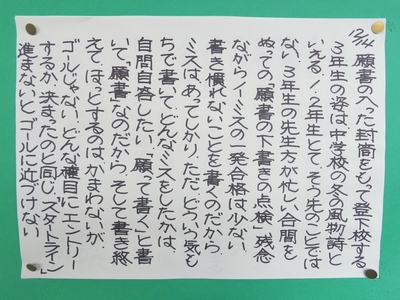 12/14
願書の入った封筒をもって登下校する
3年生の姿は中学校の冬の風物詩と
いえる!1.2年生とて、そう先のことでは
ない。3年生の先生方が忙しい合間を
ぬっての「願書の下書きの点検」残念
ながらノーミスの一発合格は少ない。
書き慣れないことを書くのだから、
ミスは、あってしかり、ただ、どういう気も
ちで書いて、どんなミスをしたかは、
自問自答したい。願って書く」と書
いて「願書」なのだから。そして書き終
えて、ほっとするのは、かまわないが、
ゴールじゃない。どんな種目に、エントリー
するか、決まったのと同じ。「スタートライン」
進まないと、ゴールに近づけない